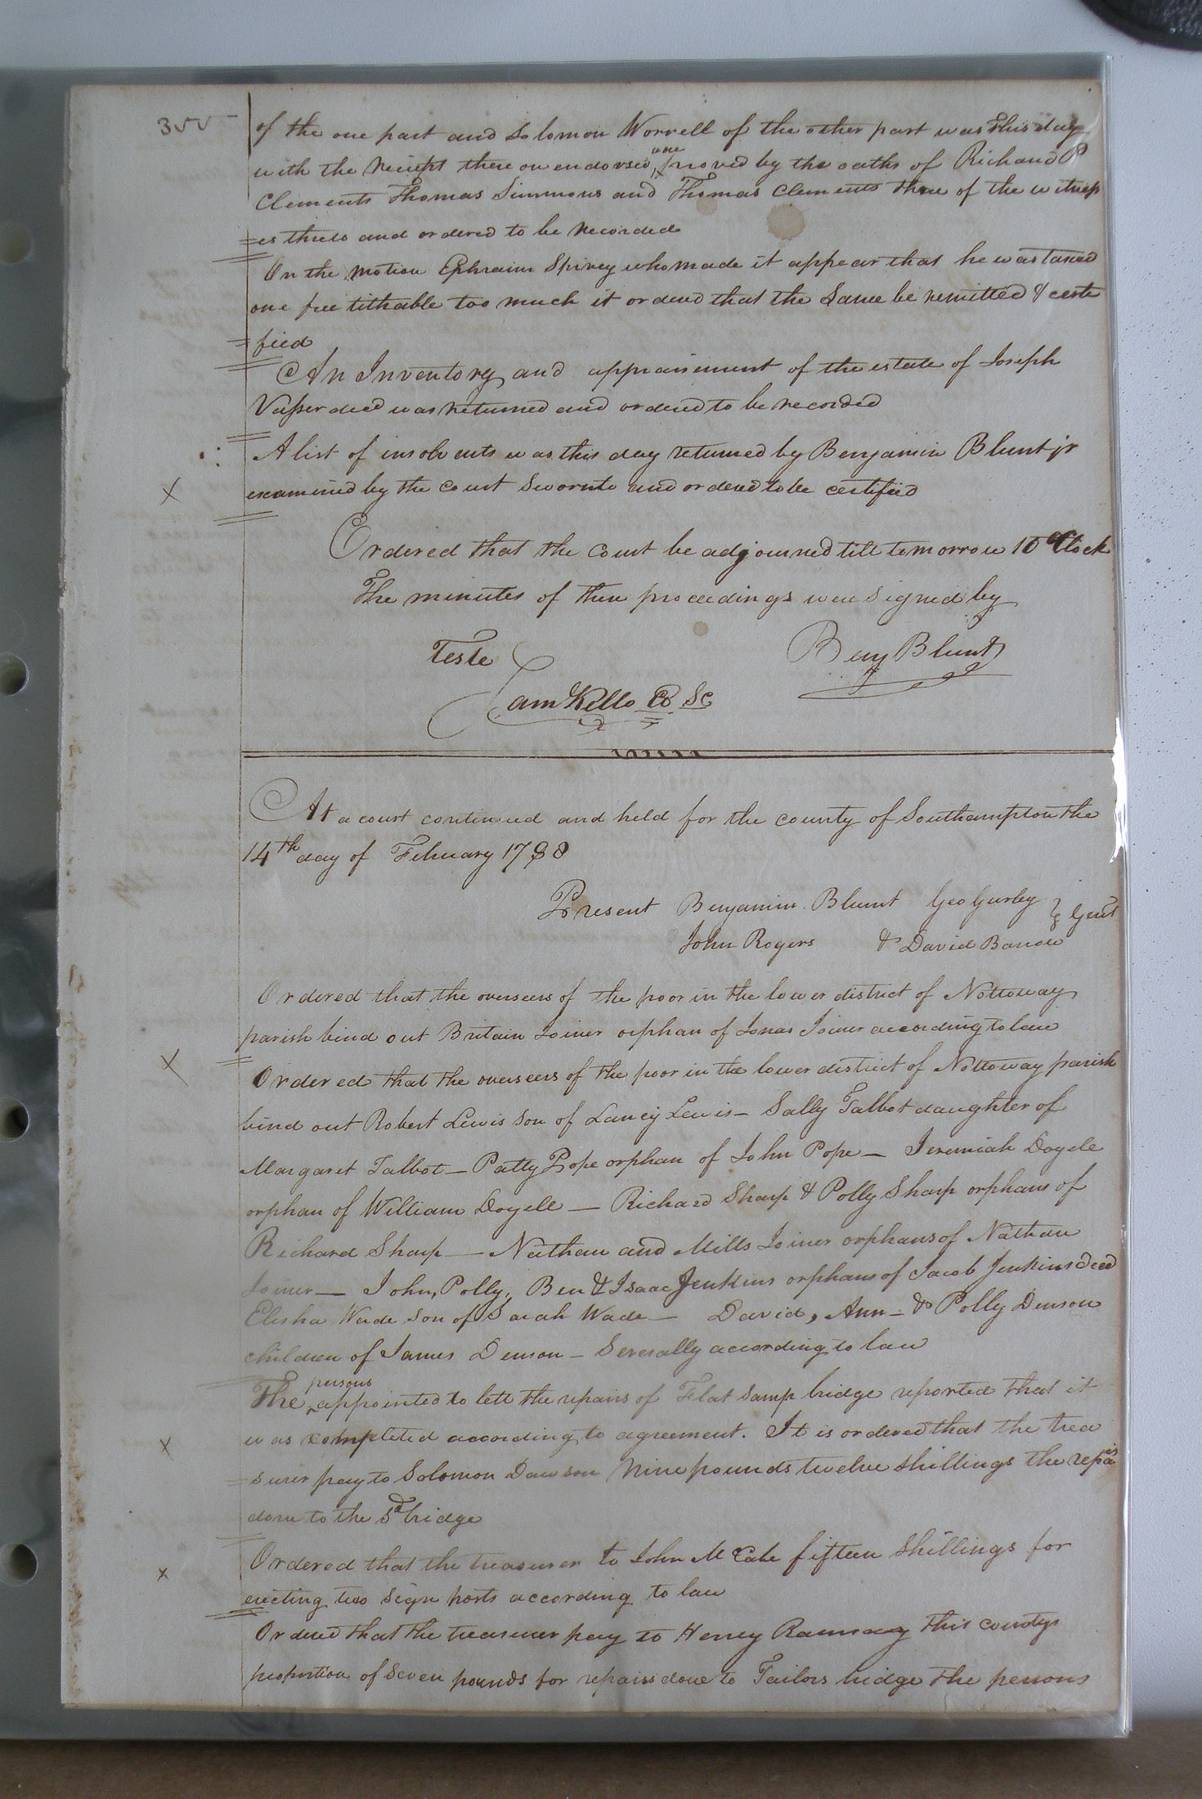 355
of the one part and Solomon Worrell of the other part was this day
with the Reciept there on endorsed, were proved by the oaths of Richard P
Clements Thomas Simmons and Thomas Clements three of the witness
es thereto and ordered to be recorded
On the motion Ephraim Spivey who made it appear that he was taxed
one free tithable too much it ordered that the Same be remitted & certi
fied
An Inventory and appraisement of the estate of Joseph
Vasser decd was returned and ordered to be recorded
A list of insolvents was this day returned by Benjamin Blunt jr
examined by the court Sworn to and ordered to be certified
Ordered that the court be adjourned till tomorrow 10 oClock
The minutes of these proceedings were signed by
Teste
Benj Blunt
Sam Kello Co Sc
At a court continued and held for the county of Southampton the
14th day of February 1788
Present Benjamin Blunt Geo Gurley
John Rogers & David Barrow } Gent
Ordered that the overseers of the poor in the lower district of Nottoway
parish bind out Britain Joiner orphan of Jonas Joiner according to law
Ordered that the overseers of the poor in the lower district of Nottoway parish
bind out Robert Lewis Son of Lancy Lewis - Sally Talbot daughter of
Margaret Talbot - Patty Pope orphan of John Pope - Jeremiah Doyele
orphan of William Doyell - Richard Sharp & Polly Sharp orphans of
Richard Sharp - Nathan and Mills Joiner orphans of Nathan
Joiner - John, Polly, Ben & Isaac Jenkins orphans of Jacob Jenkins Decd
Elisha Wade Son of Sarah Wade - David, Ann - & Polly Denson
children of James Denson - Severally according to law
The persons appointed to lett the repairs of Flat Samp bridge reported that it
was completed according to agreement. It is ordered that the trea
surer pay to Solomon Dawson Nine pounds twelve shillings the repairs
done to the Sd bridge
Ordered that the treasurer to John McCabe fifteen Shillings for
erecting two Sign posts according to law
Ordered that the treasurer pay to Henry Ramsay this countys
proportion of Seven pounds for repairs done to Tailors bridge the persons